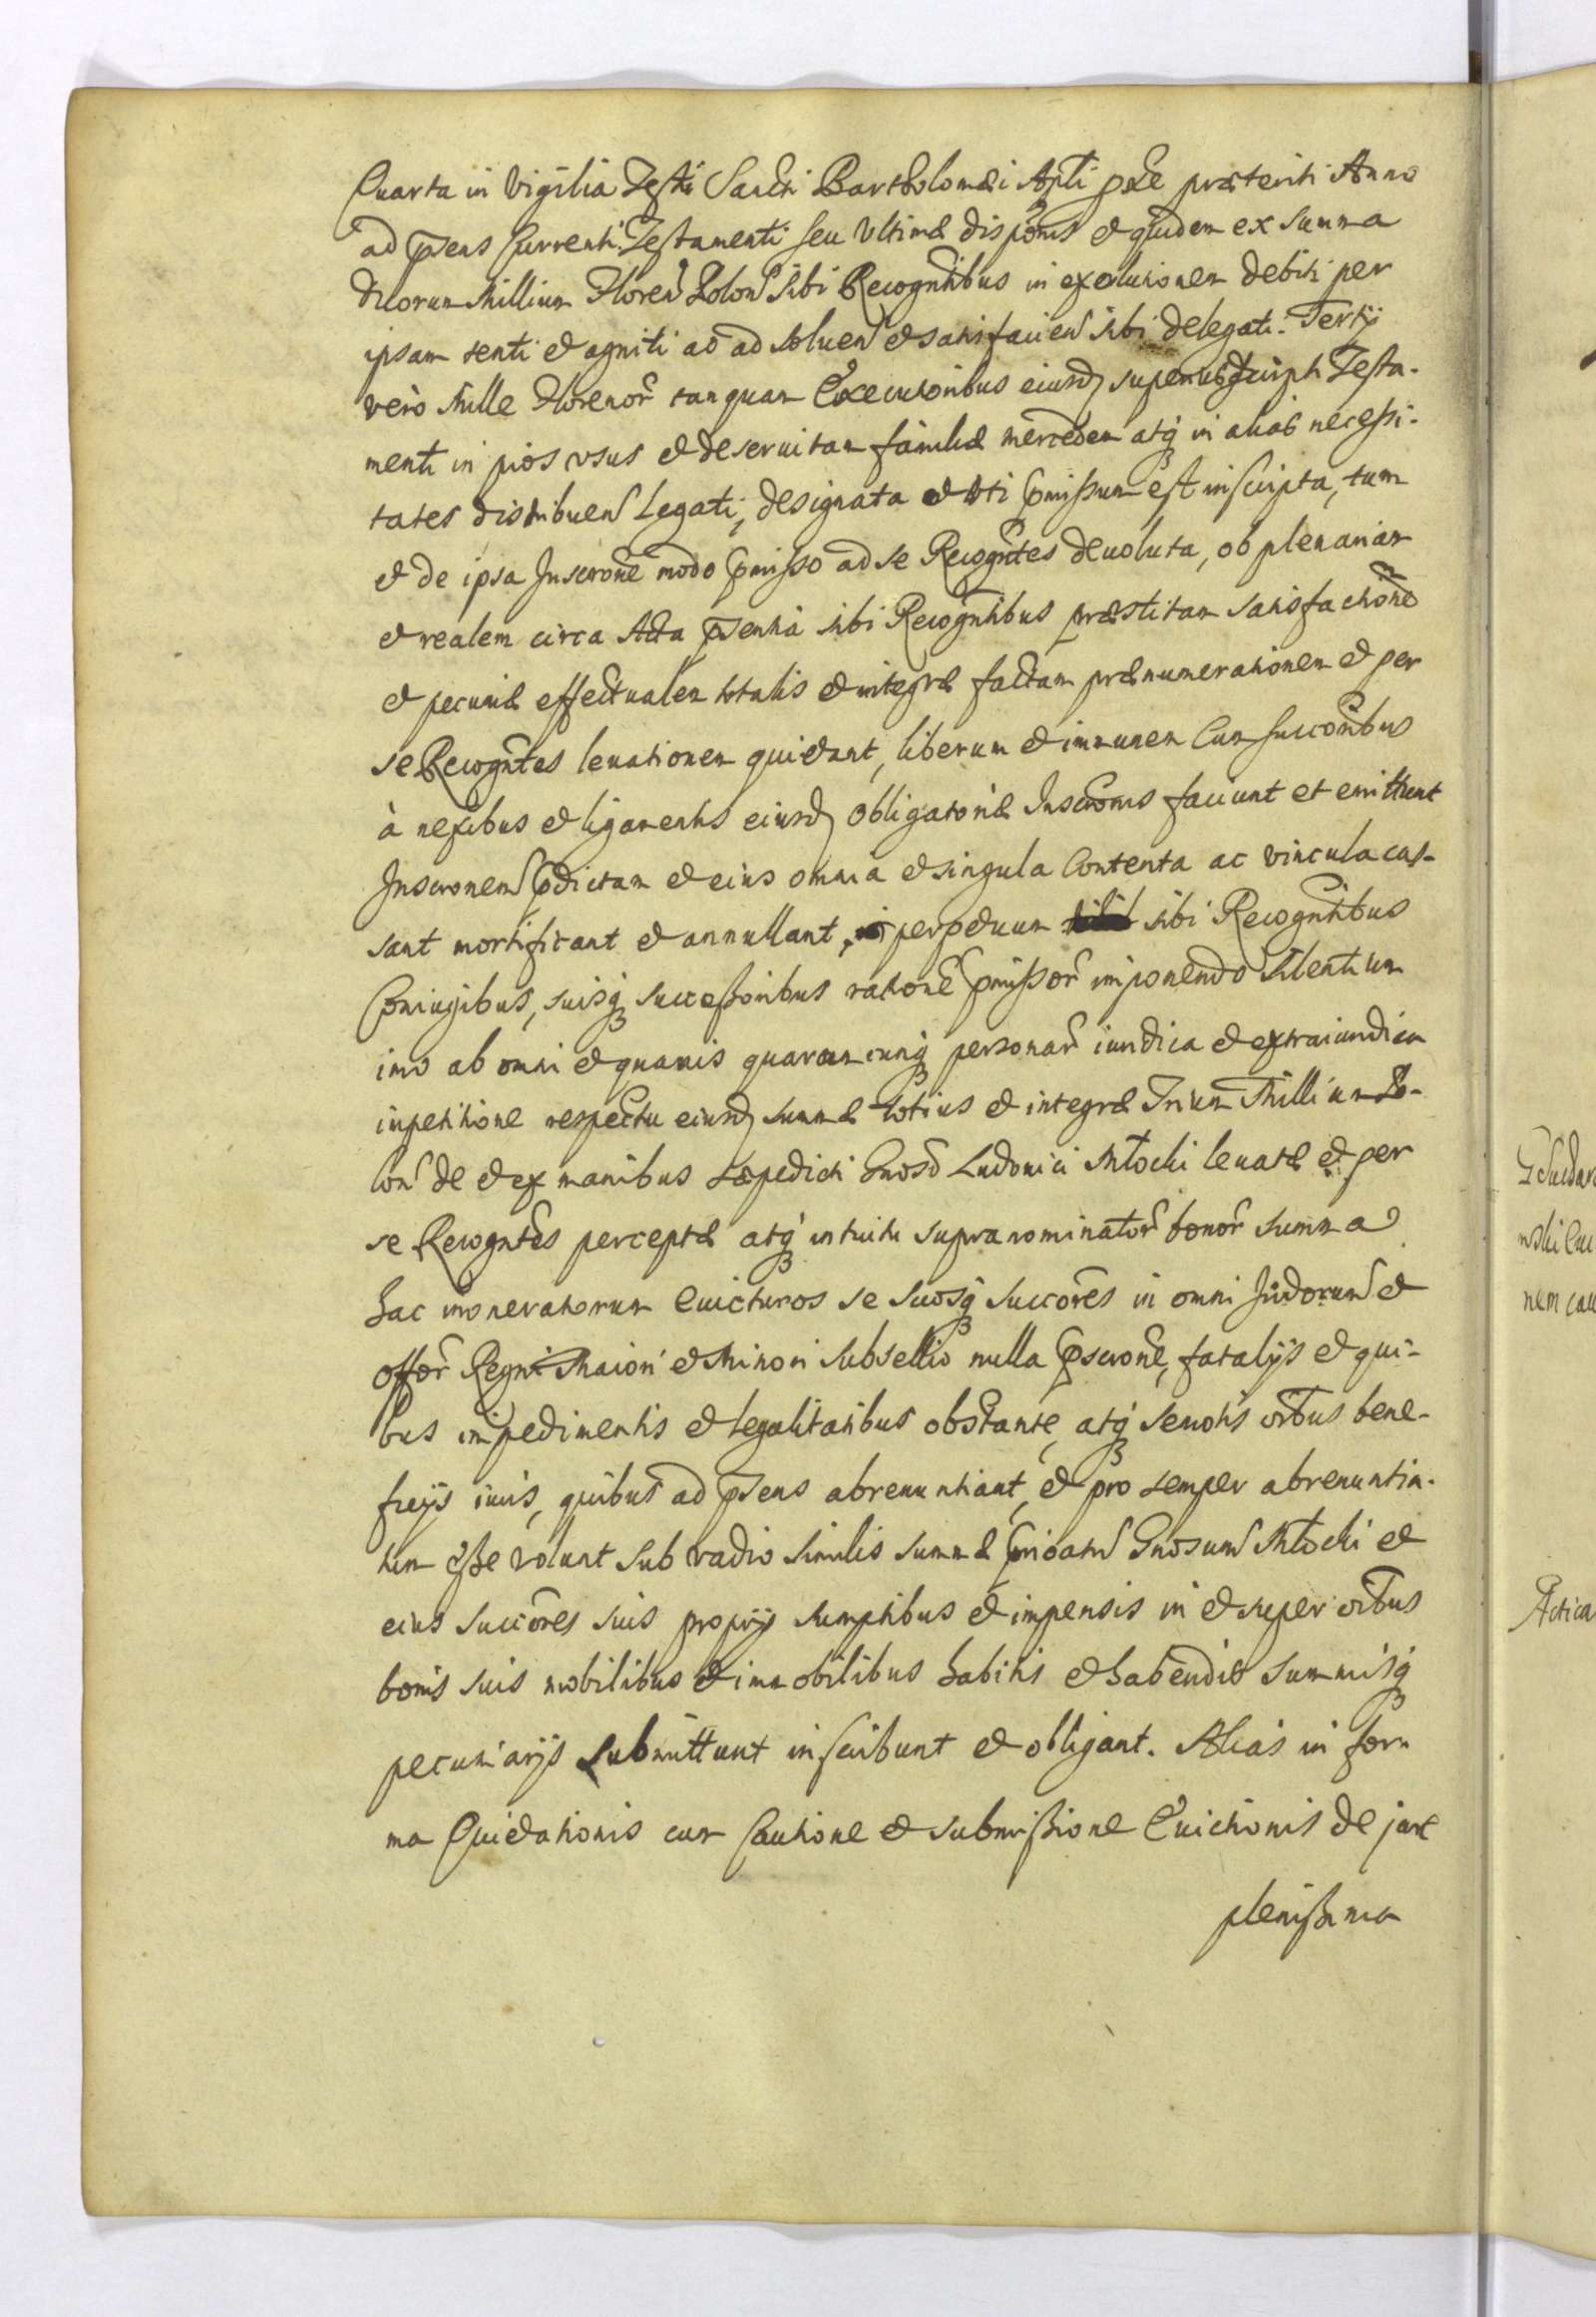 Quarta in Vigilia Festi Sancti Bartholomæi Apli pxe præteriti Anno
ad psens Currenti Testamenti seu Ultimæ dispõnis et quidem ex summa
duorum Millium Floren Polon sibi Recogntibus in exolutionem debiti per
ipsam tenti et agniti ac ad soluen et satisfacien sibi delegati. Tertÿ
vero Mille Florenor tanquam Executoribus eiusd superius Testa-
menti in pios usus et deseruitam familiæ mercedem atq in alias necessi-
tates distribuen Legati, designata et uti pmissum est inscripta, tum
et de ipsa Inscrone modo pmisso ad se Recogntes deuoluta, ob plenariam
et realem circa Acta psentia sibi Recogntibus præstitam satisfactione
et pecuniæ effectualem totalis et integræ factam prænumerationem et per
se Recogntes leuationem quietant, liberum et immunem Cum succoribus
à nexibus et ligamentis eiusd obligatoriæ Inscronis faciunt et emittunt
Inscronem pdictam et eius omnia et singula Contenta ac vincula cas-
sant mortificant et annullant, perpetuum sibi Recogntibus
Coniugibus, suisq successoribus ratione pmissor imponendo silentium
imo ab omni et quauis quarumcunq personar iuridica et extraiuridica
impetitione respectu eiusd summæ totius et integræ Trium Millium Po-
lon de et ex manibus sæpedicti Gnosi Ludouici Młocki leuatæ et per
se Recogntes perceptæ atq intuitu supranominator bonor summa
hac inoneratorum euicturos se suosq succores in omni Judiorum et
offor Regni Maiori et Minori subsellio nulla pscrone, fatalÿs et qui-
bus impedimentis et legalitatibus obstante, atq semotis oibus bene-
ficÿs iuris, quibus ad psens abrenuntiant, et pro semper abrenuntia-
tum esse volunt sub vadio similis summæ Gnosum Młocki et
eius succores suis proprÿs sumptibus et impensis in et super oibus
bonis suis mobilibus et immobilibus habitis et habendis summisq
pecuniarÿs submittunt inscribunt et obligant. Alias in for-
ma Quietationis cum Cautione et submissione Euictionis de jure
plenissima
nem cau
Actica